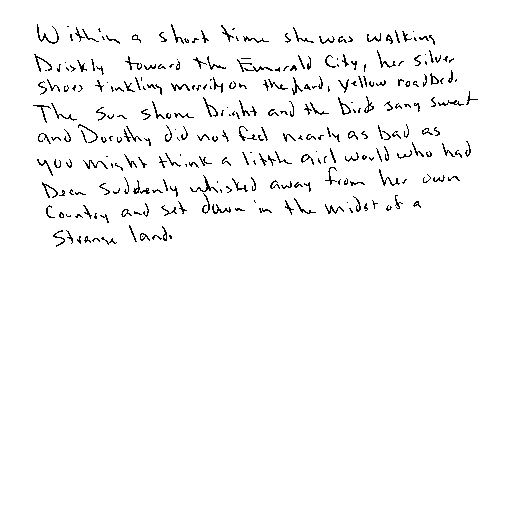 Within a short time she was walking
briskly toward the Emerald City, her silver
shoes tinkling merrily on the hard, yellow roadbed.
The sun shone bright and the birds sang sweet
and Dorothy did not feel nearly as bad as
you might think a little girl would who had
been suddenly whisked away from her own
country and set down in the midst of a
strange land.